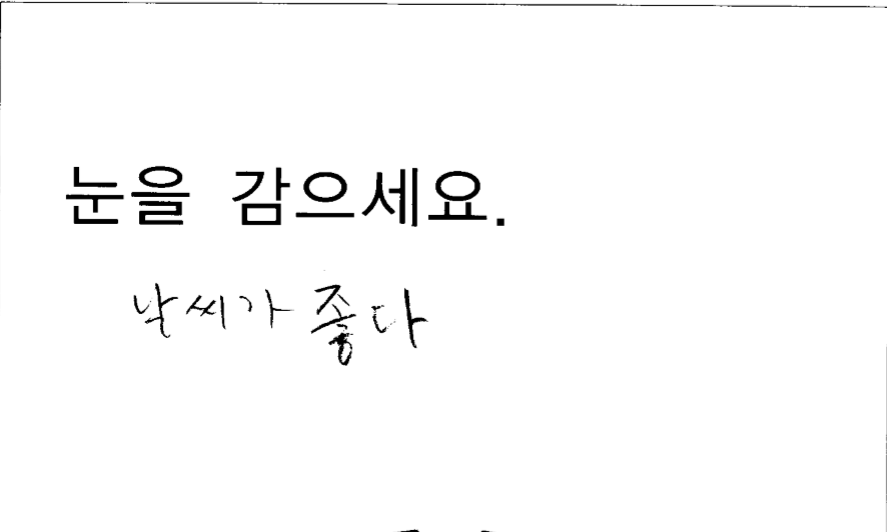 눈을 감으세요.
날씨가 좋다